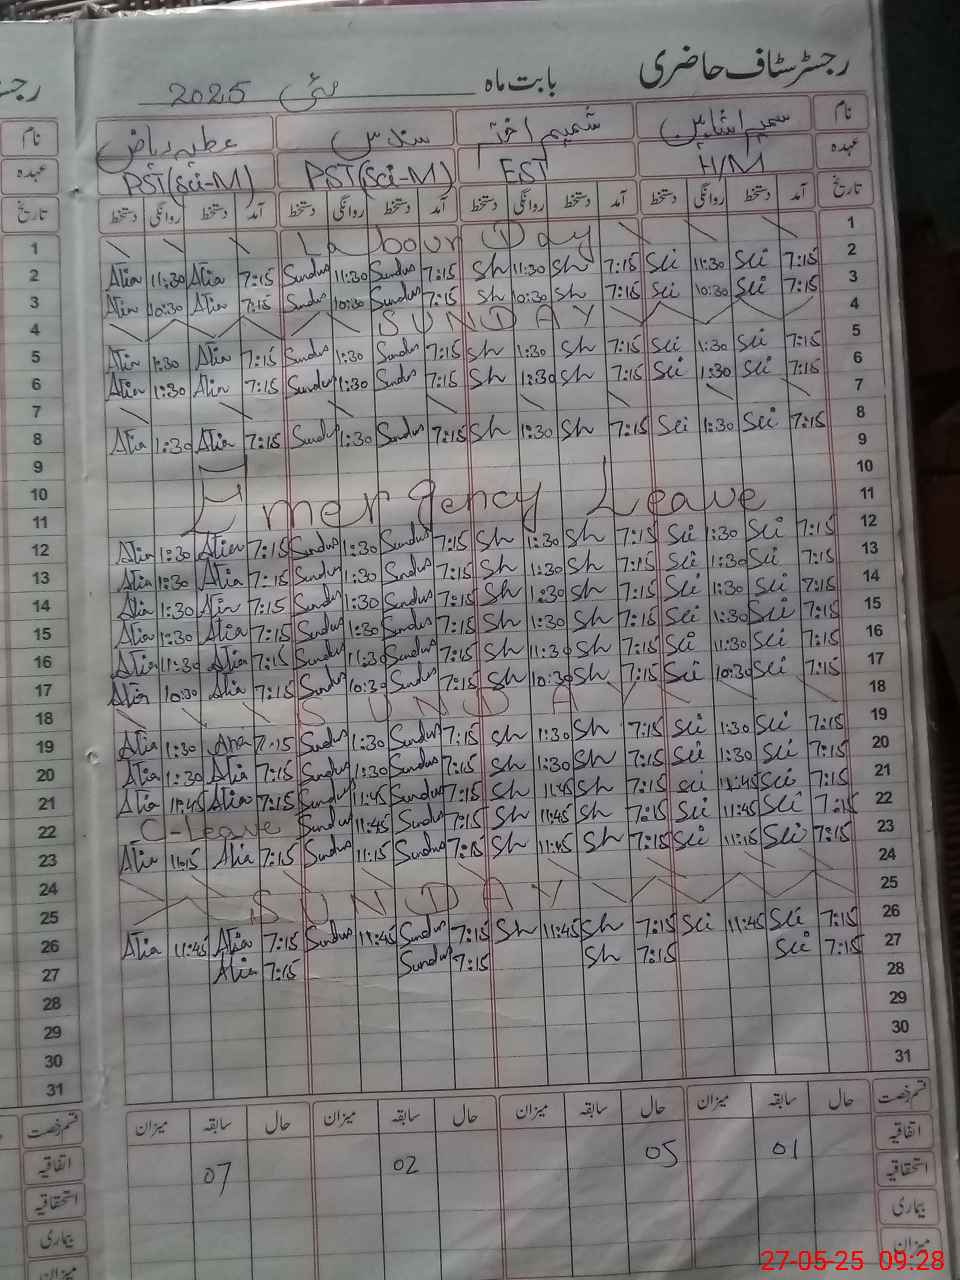 رجسٹر سٹاف حاضری بابت ماہ مئی 2025
نام سمیرا شاہین شمیم اختر سندس عطیہ ریاض نام
عہدہ H/M EST PST(Sci-M) PST(Sci-M) عہدہ
تاریخ آمد دستخط روانگی دستخط آمد دستخط روانگی دستخط آمد دستخط روانگی دستخط آمد دستخط روانگی دستخط تاریخ
1 Labour Day 1
2 Atia 11:30 Atia 7:15 Sundus 11:30 Sundus 7:15 Sh 11:30 Sh 7:15 Sei 11:30 Sei 7:15 2
3 Atia 10:30 Atia 7:15 Sundus 10:30 Sundus 7:15 Sh 10:30 Sh 7:15 Sei 10:30 Sei 7:15 3
4 SUNDAY 4
5 Atia 1:30 Atia 7:15 Sundus 1:30 Sundus 7:15 Sh 1:30 Sh 7:15 Sei 1:30 Sei 7:15 5
6 Atia 1:30 Atia 7:15 Sundus 1:30 Sundus 7:15 Sh 1:30 Sh 7:15 Sei 1:30 Sei 7:15 6
7 7
8 Atia 1:30 Atia 7:15 Sundus 1:30 Sundus 7:15 Sh 1:30 Sh 7:15 Sei 1:30 Sei 7:15 8
9 9
10 Emergency Leave 10
11 11
12 Atia 1:30 Atia 7:15 Sundus 1:30 Sundus 7:15 Sh 1:30 Sh 7:15 Sei 1:30 Sei 7:15 12
13 Atia 1:30 Atia 7:15 Sundus 1:30 Sundus 7:15 Sh 1:30 Sh 7:15 Sei 1:30 Sei 7:15 13
14 Atia 1:30 Atia 7:15 Sundus 1:30 Sundus 7:15 Sh 1:30 Sh 7:15 Sei 1:30 Sei 7:15 14
15 Atia 1:30 Atia 7:15 Sundus 1:30 Sundus 7:15 Sh 1:30 Sh 7:15 Sei 1:30 Sei 7:15 15
16 Atia 11:30 Atia 7:15 Sundus 11:30 Sundus 7:15 Sh 11:30 Sh 7:15 Sei 11:30 Sei 7:15 16
17 Atia 10:30 Atia 7:15 Sundus 10:30 Sundus 7:15 Sh 10:30 Sh 7:15 Sei 10:30 Sei 7:15 17
18 SUNDAY 18
19 Atia 1:30 Atia 7:15 Sundus 1:30 Sundus 7:15 Sh 1:30 Sh 7:15 Sei 1:30 Sei 7:15 19
20 Atia 1:30 Atia 7:15 Sundus 1:30 Sundus 7:15 Sh 1:30 Sh 7:15 Sei 1:30 Sei 7:15 20
21 Atia 11:45 Atia 7:15 Sundus 11:45 Sundus 7:15 Sh 11:45 Sh 7:15 Sei 11:45 Sei 7:15 21
22 C-Leave Sundus 11:45 Sundus 7:15 Sh 11:45 Sh 7:15 Sei 11:45 Sei 7:15 22
23 Atia 11:15 Atia 7:15 Sundus 11:15 Sundus 7:15 Sh 11:45 Sh 7:15 Sei 11:15 Sei 7:15 23
24 24
25 SUNDAY 25
26 Atia 11:45 Atia 7:15 Sundus 11:45 Sundus 7:15 Sh 11:45 Sh 7:15 Sei 11:45 Sei 7:15 26
27 Atia 7:15 Sundus 7:15 Sh 7:15 Sei 7:15 27
28 28
29 29
30 30
31 31
قسم رخصت حال سابقہ میزان حال سابقہ میزان حال سابقہ میزان حال سابقہ میزان قسم رخصت
اتفاقیہ 01 05 02 07 اتفاقیہ
استحقاقیہ استحقاقیہ
بیماری بیماری
میزان میزان
27-05-25 09:28